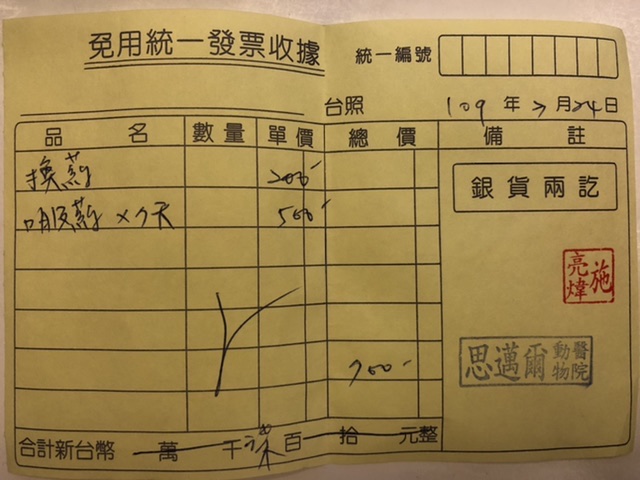 免用統一發票收據
統一編號
台照 109年2月24日
品名 數量 單價 總價 備註
換藥 200
口服藥 ×7天 500
銀貨兩訖
施亮煒
思邁爾動物醫院
700
合計新台幣 萬 千 柒百 拾 元整